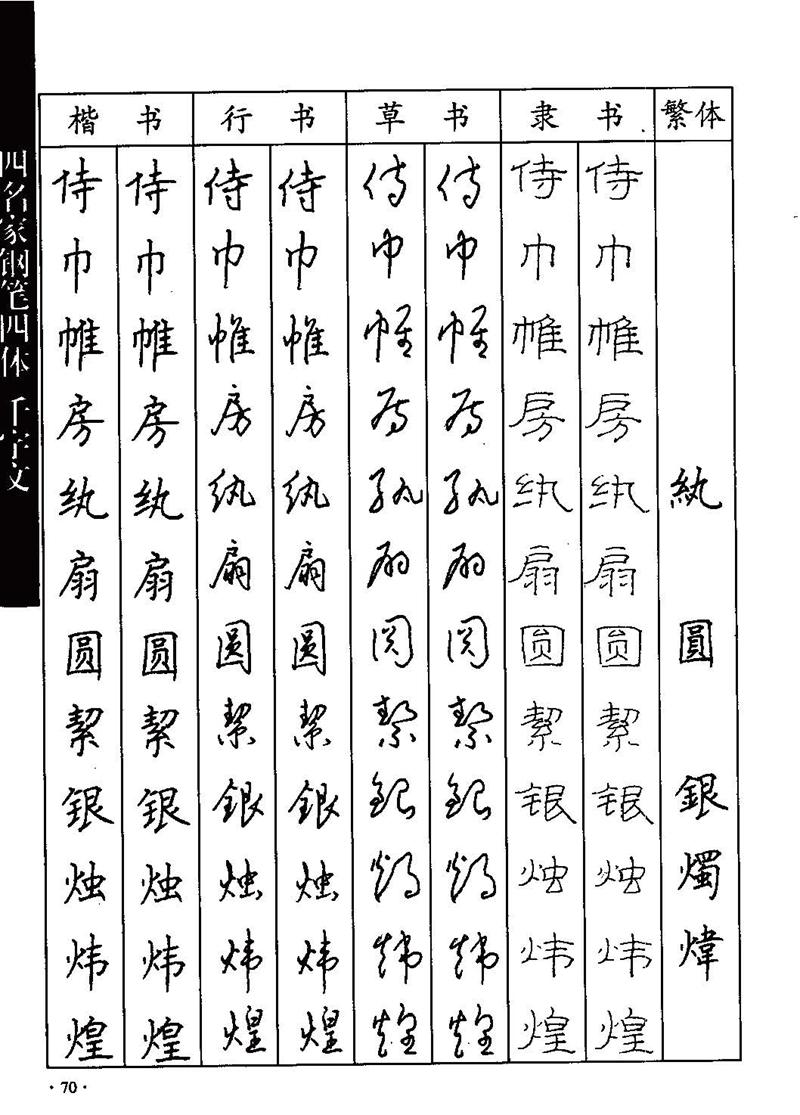 四名家钢笔四体 千字文
楷书 行书 草书 隶书 繁体
侍 侍 侍 侍 侍 侍 侍 侍
巾 巾 巾 巾 巾 巾 巾 巾
帷 帷 帷 帷 帷 帷 帷 帷
房 房 房 房 房 房 房 房
纨 纨 纨 纨 纨 纨 纨 纨 紈
扇 扇 扇 扇 扇 扇 扇 扇
圆 圆 圆 圆 圆 圆 圆 圆 圓
絜 絜 絜 絜 絜 絜 絜 絜
银 银 银 银 银 银 银 银 銀
烛 烛 烛 烛 烛 烛 烛 烛 燭
炜 炜 炜 炜 炜 炜 炜 炜 煒
煌 煌 煌 煌 煌 煌 煌 煌
·70·